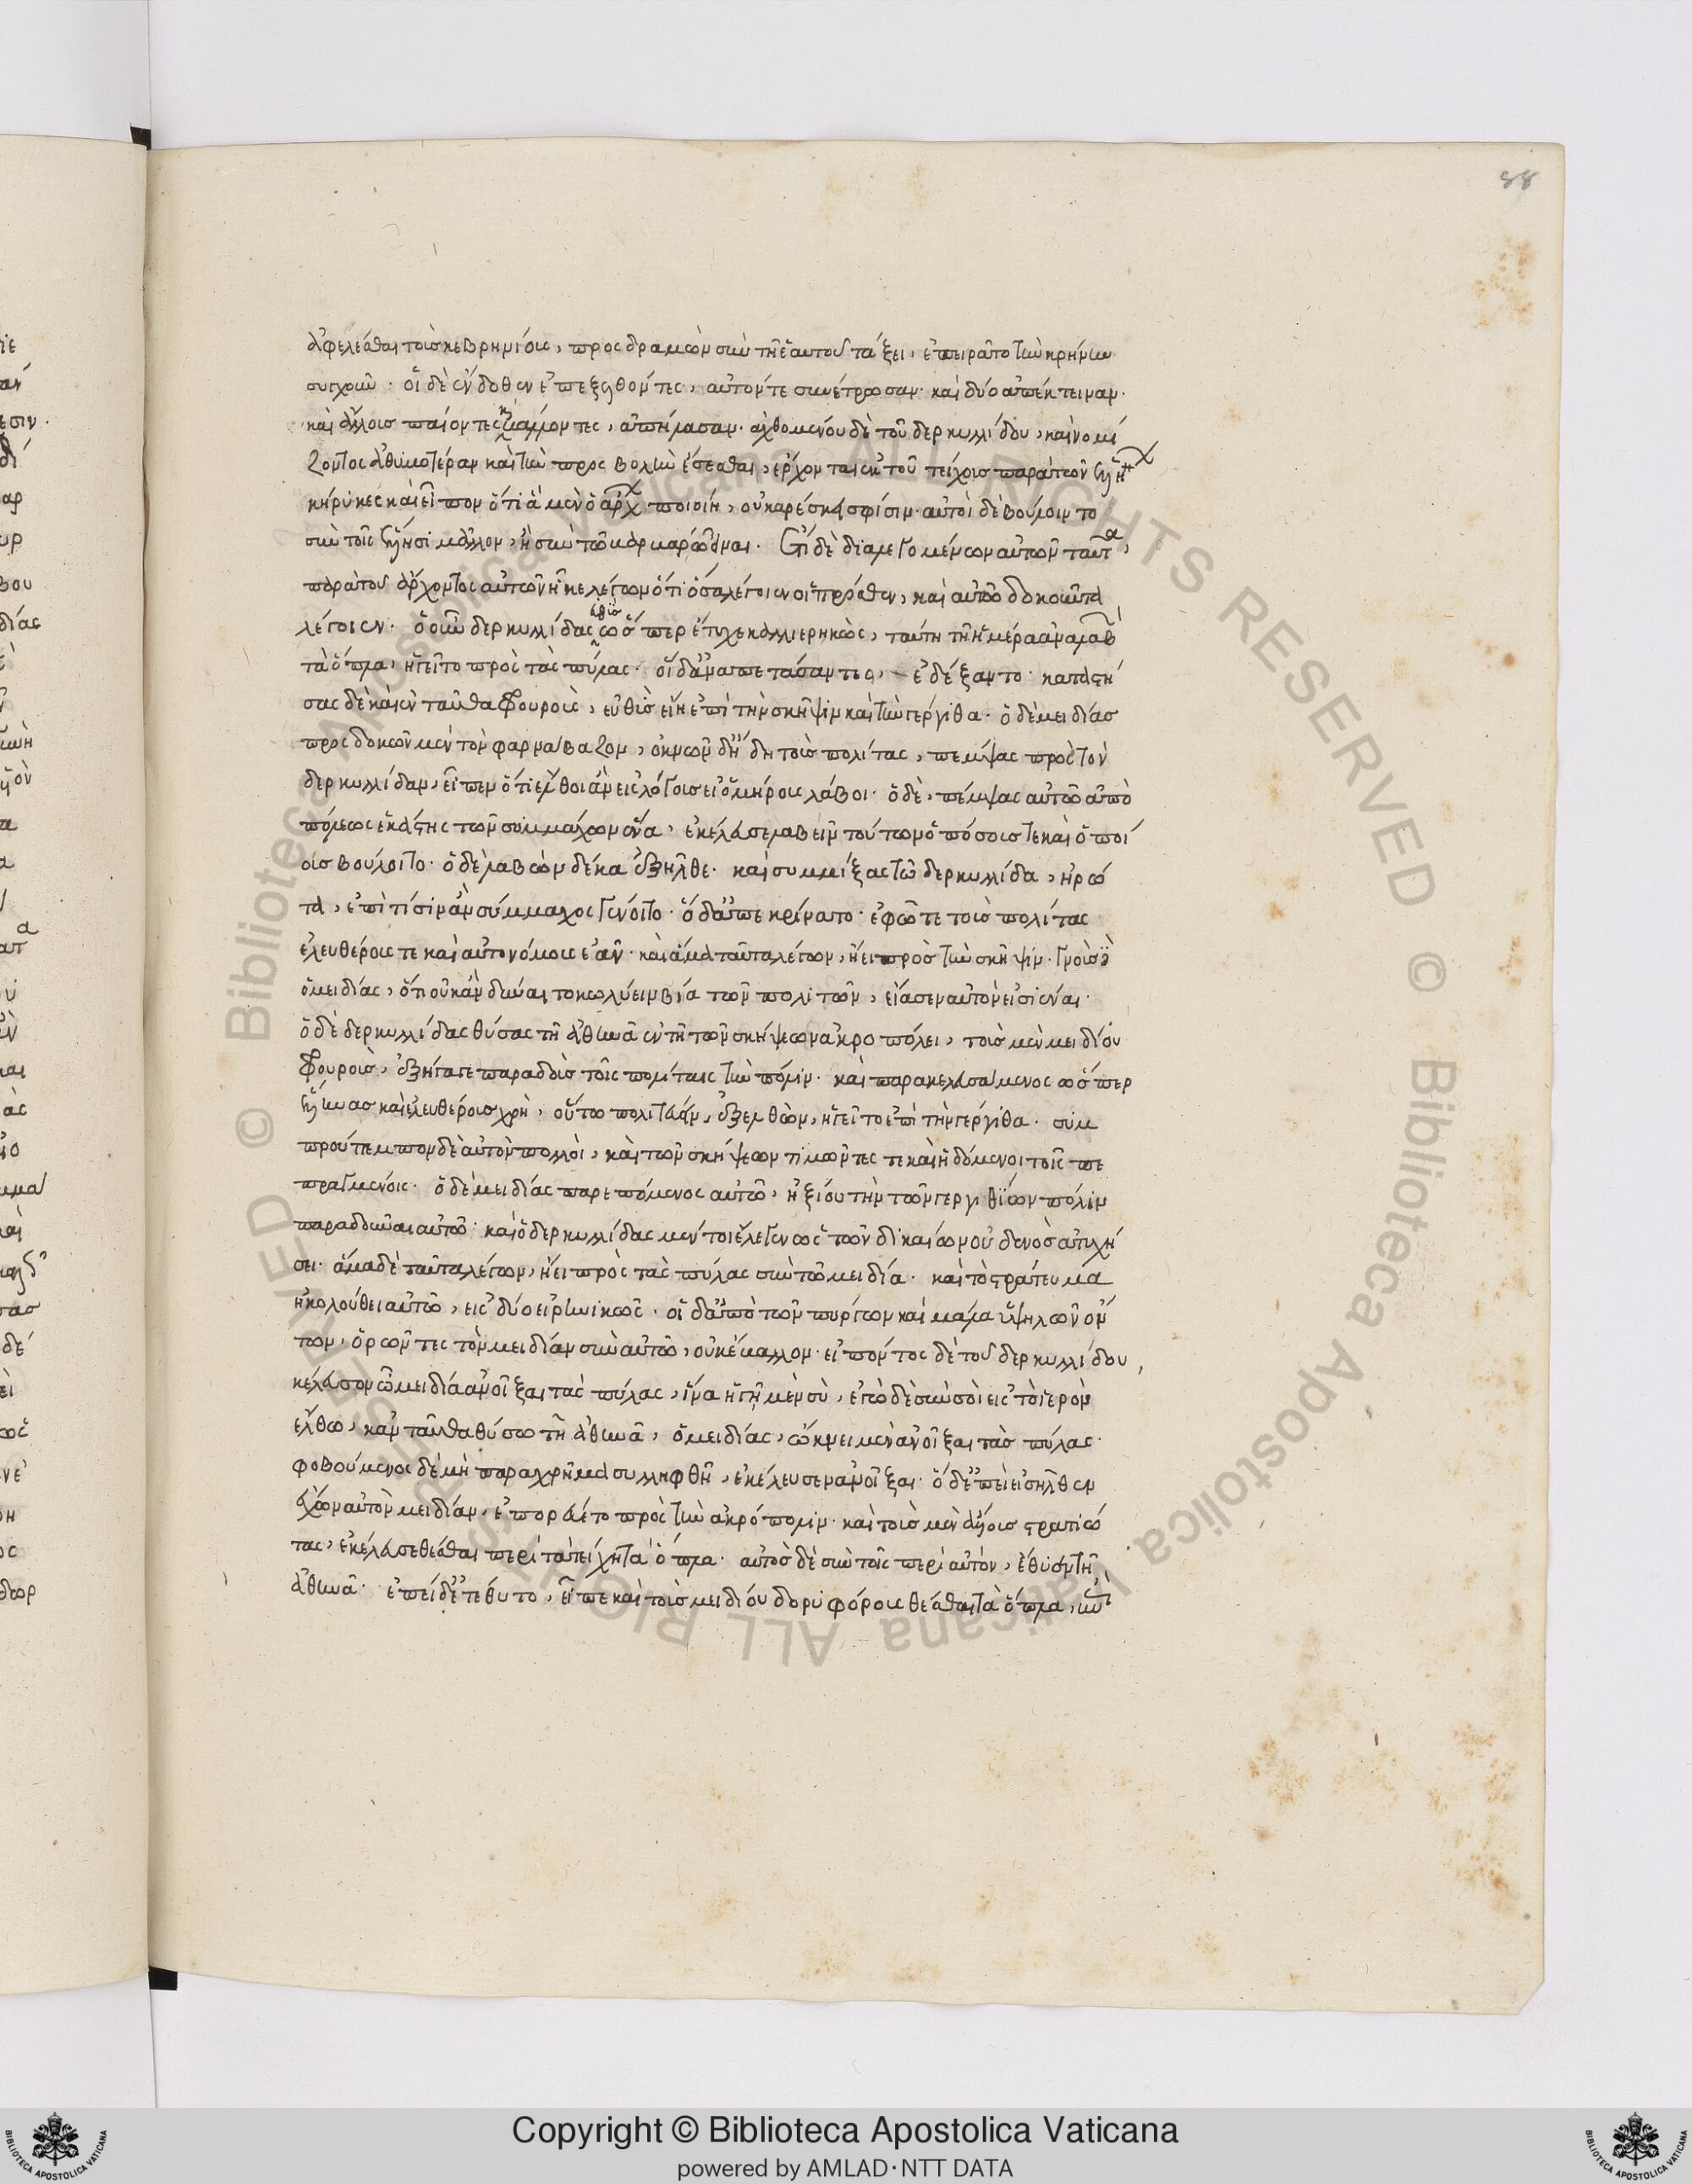 38
ἀφελέσθαι τοὺς κεβρηνίους, προσδραμὼν σὺν τῇ ἑαυτοῦ τάξει, ἐπειρᾶτο τὴν κρήνην
συγχοῦν· οἱ δὲ ἔνδοθεν ἐπεξελθόντες, αὐτόν τε συνέτρωσαν· καὶ δύο ἀπέκτειναν·
καὶ ἄλλους παίοντες κ βάλλοντες, ἀπήλασαν· ἀχθομένου δὲ τοῦ δερκυλλίδου, καὶ νομί
ζοντος ἀθυμοτέραν καὶ τὴν προσβολὴν ἔσεσθαι, ἔρχονται ἐκ τοῦ τείχους παρὰ τῶν ἑλλήν
κήρυκες καὶ εἶπον ὅτι ἃ μὲν ὁ ἄρχ ποιοίη, οὐκ ἀρέσκει σφίσιν· αὐτοὶ δὲ βούλοιντο
σὺν τοῖς ἕλλησι μᾶλλον, ἢ σὺν τῶ βαρβάρω εἶναι. ἔτι δὲ διαλεγομένων αὐτῶν ταῦτα,
παρὰ τοῦ ἄρχοντος αὐτῶν ἧκε λέγων ὅτι ὅσα λέγοιεν οἱ πρόσθεν, καὶ αὐτῶ δοκοῦντα
λέγοιεν· ὁ οὖν δερκυλλίδας εὐθὺς ὥσπερ ἔτυχε κεκαλλιερηκὼς, ταύτη τῇ ἡμέρα ἀναλαβ
τὰ ὅπλα, ἡγεῖτο πρὸς τὰς πύλας· οἱ δ' ἀναπετάσαντες, ἐδέξαντο· καταστή
σας δὲ καὶ ἐνταῦθα φρουροὺς, εὐθὺς εἴη ἐπὶ τὴν σκῆψιν καὶ τὴν γέργιθα· ὁ δὲ μειδίας
προσδοκῶν μὲν τὸν φαρνάβαζον, ὀκνῶν δ' ἤδη τοὺς πολίτας, πέμψας πρὸς τὸν
δερκυλλίδαν, εἶπεν ὅτι ἔλθοι ἂν εἰς λόγους εἰ ὁμήρους λάβοι· ὁ δὲ, πέμψας αὐτῶ ἀπὸ
πόλεως ἑκάστης τῶν συμμάχων ἕνα, ἐκέλευσε λαβεῖν τούτων ὁπόσους τε καὶ ὁποί
ους βούλοιτο· ὁ δὲ λαβὼν δέκα ἐξῆλθε· καὶ συμμίξας τῶ δερκυλλίδα, ἠρώ
τα, ἐπὶ τίσιν ἂν σύμμαχος γένοιτο· ὁ δ' ἀπεκρίνατο· ἐφ' ὧ τε τοὺς πολίτας
ἐλευθέρους τε καὶ αὐτονόμους ἐᾶν· καὶ ἅμα ταῦτα λέγων, ἤει πρὸς τὴν σκῆψιν· γνοὺς δ
ὁ μειδίας, ὅτι οὐκ ἂν δύναιτο κωλύειν βία τῶν πολιτῶν, εἴασεν αὐτὸν εἰσιέναι·
ὁ δὲ δερκυλλίδας θύσας τῇ ἀθηνᾶ ἐν τῇ τῶν σκήψεων ἀκροπόλει, τοὺς μὲν μειδίου
φρουροὺς, ἐξήγαγε παραδοὺς τοῖς πολίταις τὴν πόλιν· καὶ παρακελευσάμενος ὥσπερ
ἕλληνας καὶ ἐλευθέρους χρὴ, οὕτω πολιτεύειν, ἐξελθὼν, ἡγεῖτο ἐπὶ τὴν γέργιθα· συμ
προύπεμπον δὲ αὐτὸν πολλοὶ, καὶ τῶν σκήψεων τιμῶντες τε καὶ ἡδόμενοι τοῖς πε
πραγμένοις· ὁ δὲ μειδίας παρεπόμενος αὐτῶ, ἠξίου τὴν τῶν γεργιθίων πόλιν
παραδοῦναι αὐτῶ· καὶ ὁ δερκυλλίδας μέντοι ἔλεγεν ὡς τῶν δικαίων οὐδενὸς ἀτυχή
σει· ἅμα δὲ ταῦτα λέγων, ἤει πρὸς τὰς πύλας σὺν τῶ μειδία· καὶ τὸ στράτευμα
ἠκολούθει αὐτῶ, εἰς δύο εἰρηνικῶς· οἱ δ' ἀπὸ τῶν πύργων καὶ μάλα ὑψηλῶν ὄν
των, ὁρῶντες τὸν μειδίαν σὺν αὐτῶ, οὐκ ἔβαλλον· εἰπόντος δὲ τοῦ δερκυλλίδου,
κέλευσον ὦ μειδία ἀνοῖξαι τὰς πύλας, ἵνα ἡγῇ μὲν σὺ, ἐγὼ δὲ σὺν σοὶ εἰς τὸ ἱερὸν
ἔλθω, κἀνταῦθα θύσω τῇ ἀθηνᾶ, ὁ μειδίας, ὤκνει μὲν ἀνοῖξαι τὰς πύλας·
φοβούμενος δὲ μὴ παραχρῆμα συλληφθῆ, ἐκέλευσεν ἀνοῖξαι· ὁ δ' ἐπεὶ εἰσῆλθεν
ἔχων αὖ τὸν μειδίαν, ἐπορεύετο πρὸς τὴν ἀκρόπολιν· καὶ τοὺς μὲν ἄλλους στρατιώ
τας, ἐκέλευσε θέσθαι περὶ τὰ τείχη τὰ ὅπλα· αὐτὸς δὲ σὺν τοῖς περὶ αὐτὸν, ἔθυε τῇ
ἀθηνᾶ· ἐπεὶ δ' ἐτέθυτο, εἶπε καὶ τοὺς μειδίου δορυφόρους θέσθαι τὰ ὅπλα,
Copyright © Biblioteca Apostolica Vaticana
powered by AMLAD·NTT DATA